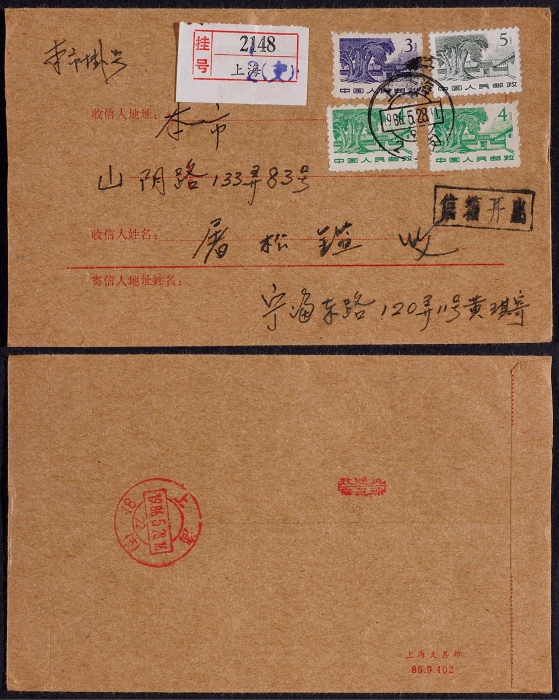 本市掛号
挂号
2148
上海
2(支)
3分
中国人民邮政
5分
中国人民邮政
中国人民邮政
4分
中国人民邮政
上海
1986.5.28
收信人地址:
本市
山阴路133弄83号
信箱开出
收信人姓名:
屠松鑑 收
寄信人地址姓名:
宁海东路120弄11号黄琪寄
上海
1986.5.28
上海文具厂
85.9.402